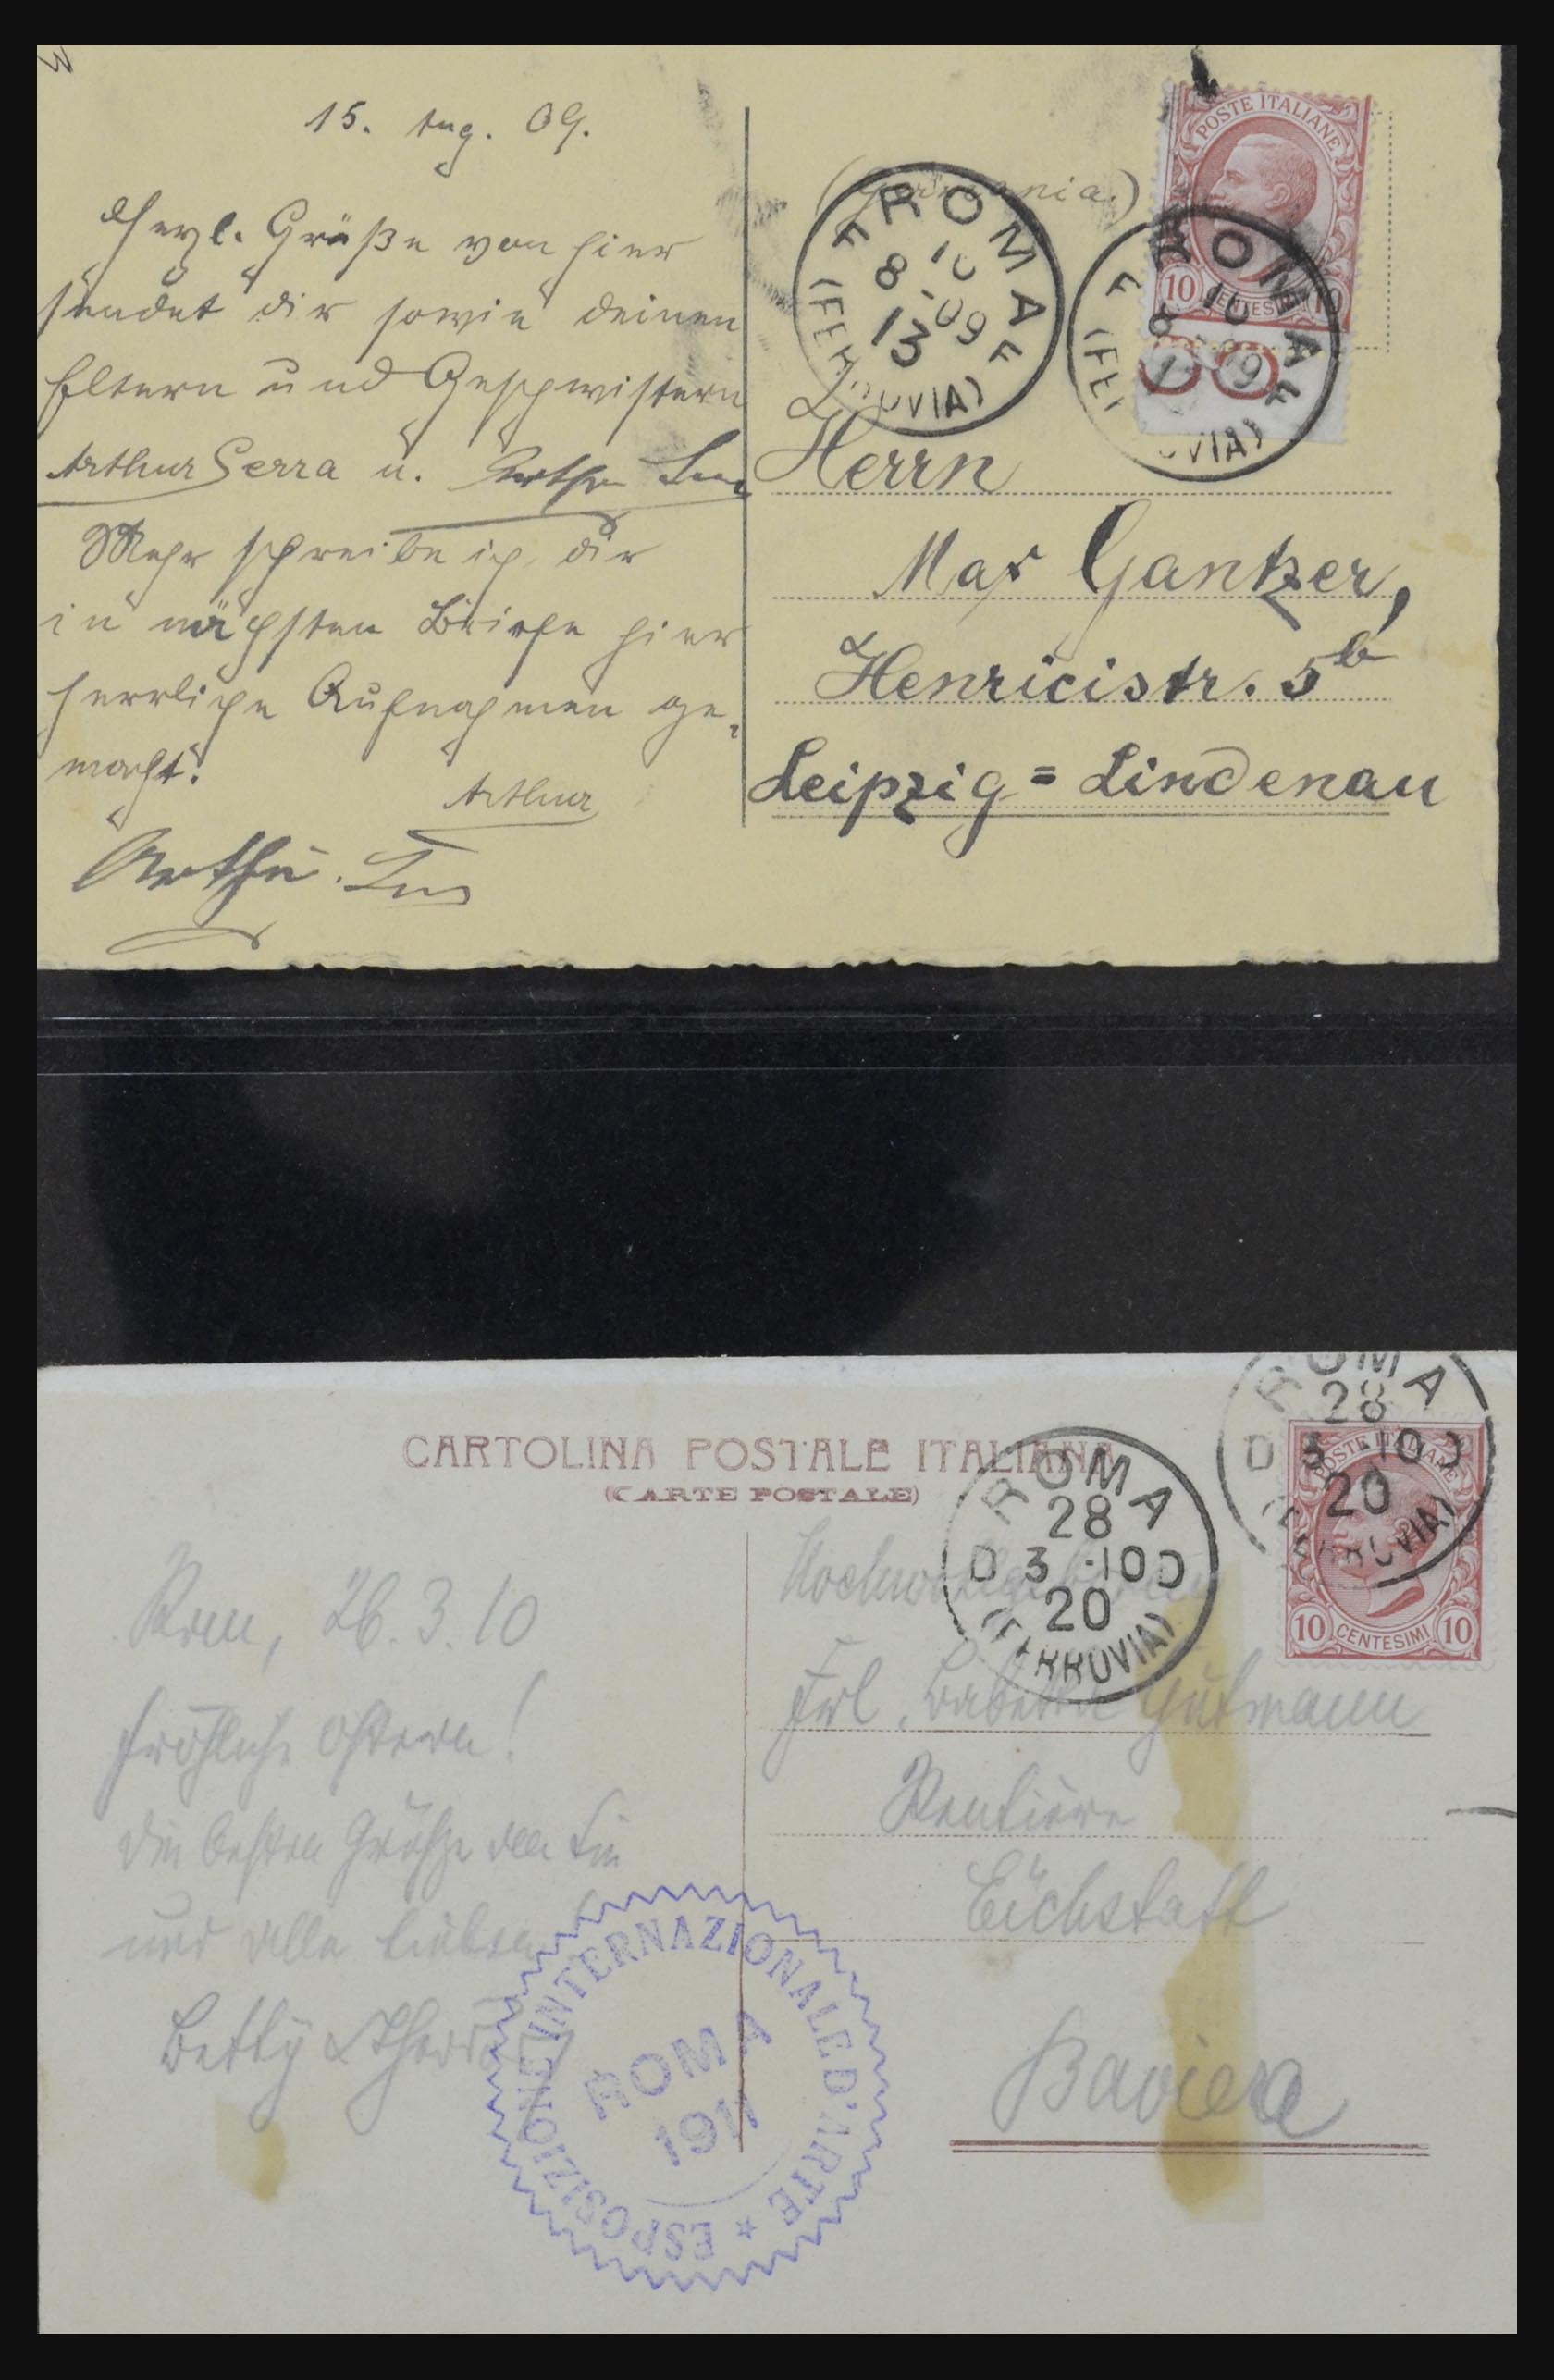 15. Aug. 09.
Herzl. Grüße von hier
sendet dir sowie deinen
Eltern und Geschwistern
Arthur Serra u.
Mehr schreibe ich dir
in nächsten Briefe hier
herrliche Aufnahmen ge-
macht.
Arthur
POSTE ITALIANE
10 CENTESIMI 10
ROMA
F 10 F
8 -09
13
(FERROVIA)
ROMA
F 10 F
8 -09
(FERROVIA)
Herrn
Max Gantzer,
Henricistr. 5b
Leipzig = Lindenau
CARTOLINA POSTALE ITALIANA
(CARTE POSTALE)
Rom, 26.3.10
Fröhliche Ostern!
Die besten Grüße
und alle Lieben
Betty &
ROMA
28
D 3 -10 D
20
(FERROVIA)
ROMA
28
D 3 -10 D
20
(FERROVIA)
POSTE ITALIANE
10 CENTESIMI 10
Frl. Babette Gutmann
Rentiere
Eichstätt
Baviera
ESPOSIZIONE INTERNAZIONALE D'ARTE *
ROMA
1911